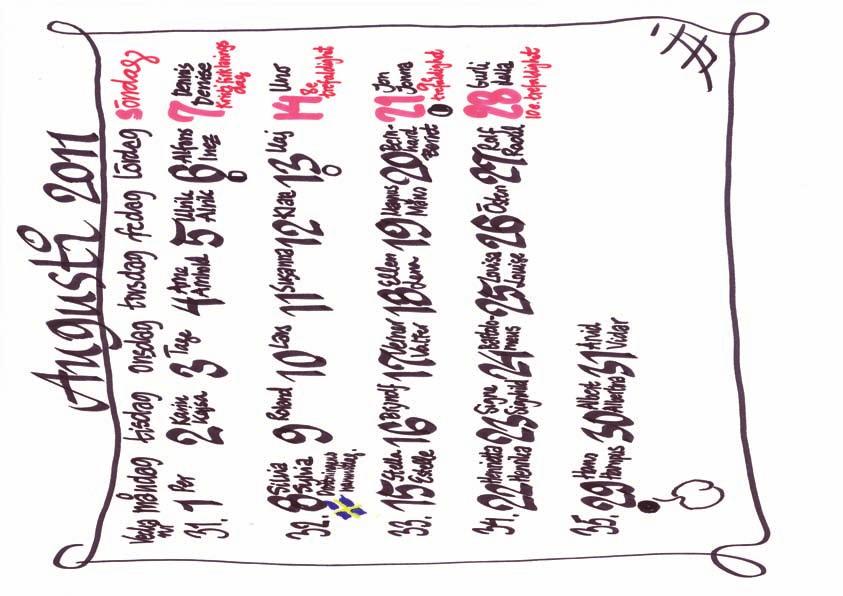 Augusti 2011
Vecka nr måndag tisdag onsdag torsdag fredag lördag söndag
31. 1 Per 2 Karin Kajsa 3 Tage 4 Arne Arnold 5 Ulrik Alrik 6 Alfons Inez 7 Dennis Denise Kristi förklarings dag
32. 8 Silvia Sylvia Drottningens namnsdag. 9 Roland 10 Lars 11 Susanna 12 Klara 13 Kaj 14 Uno 8e trefaldight
33. 15 Stella Estelle 16 Brynolf 17 Verner Valter 18 Ellen Lena 19 Magnus Måns 20 Bern- hard Berndt 21 Jon Jonna 9e trefaldight
34. 22 Henrietta Henrika 23 Signe Signhild 24 Bartolo- meus 25 Lovisa Louise 26 Östen 27 Rolf Raoul 28 Gurli Leila 10e. trefaldight
35. 29 Hans Hampus 30 Albert Albertina 31 Arvid Vidar